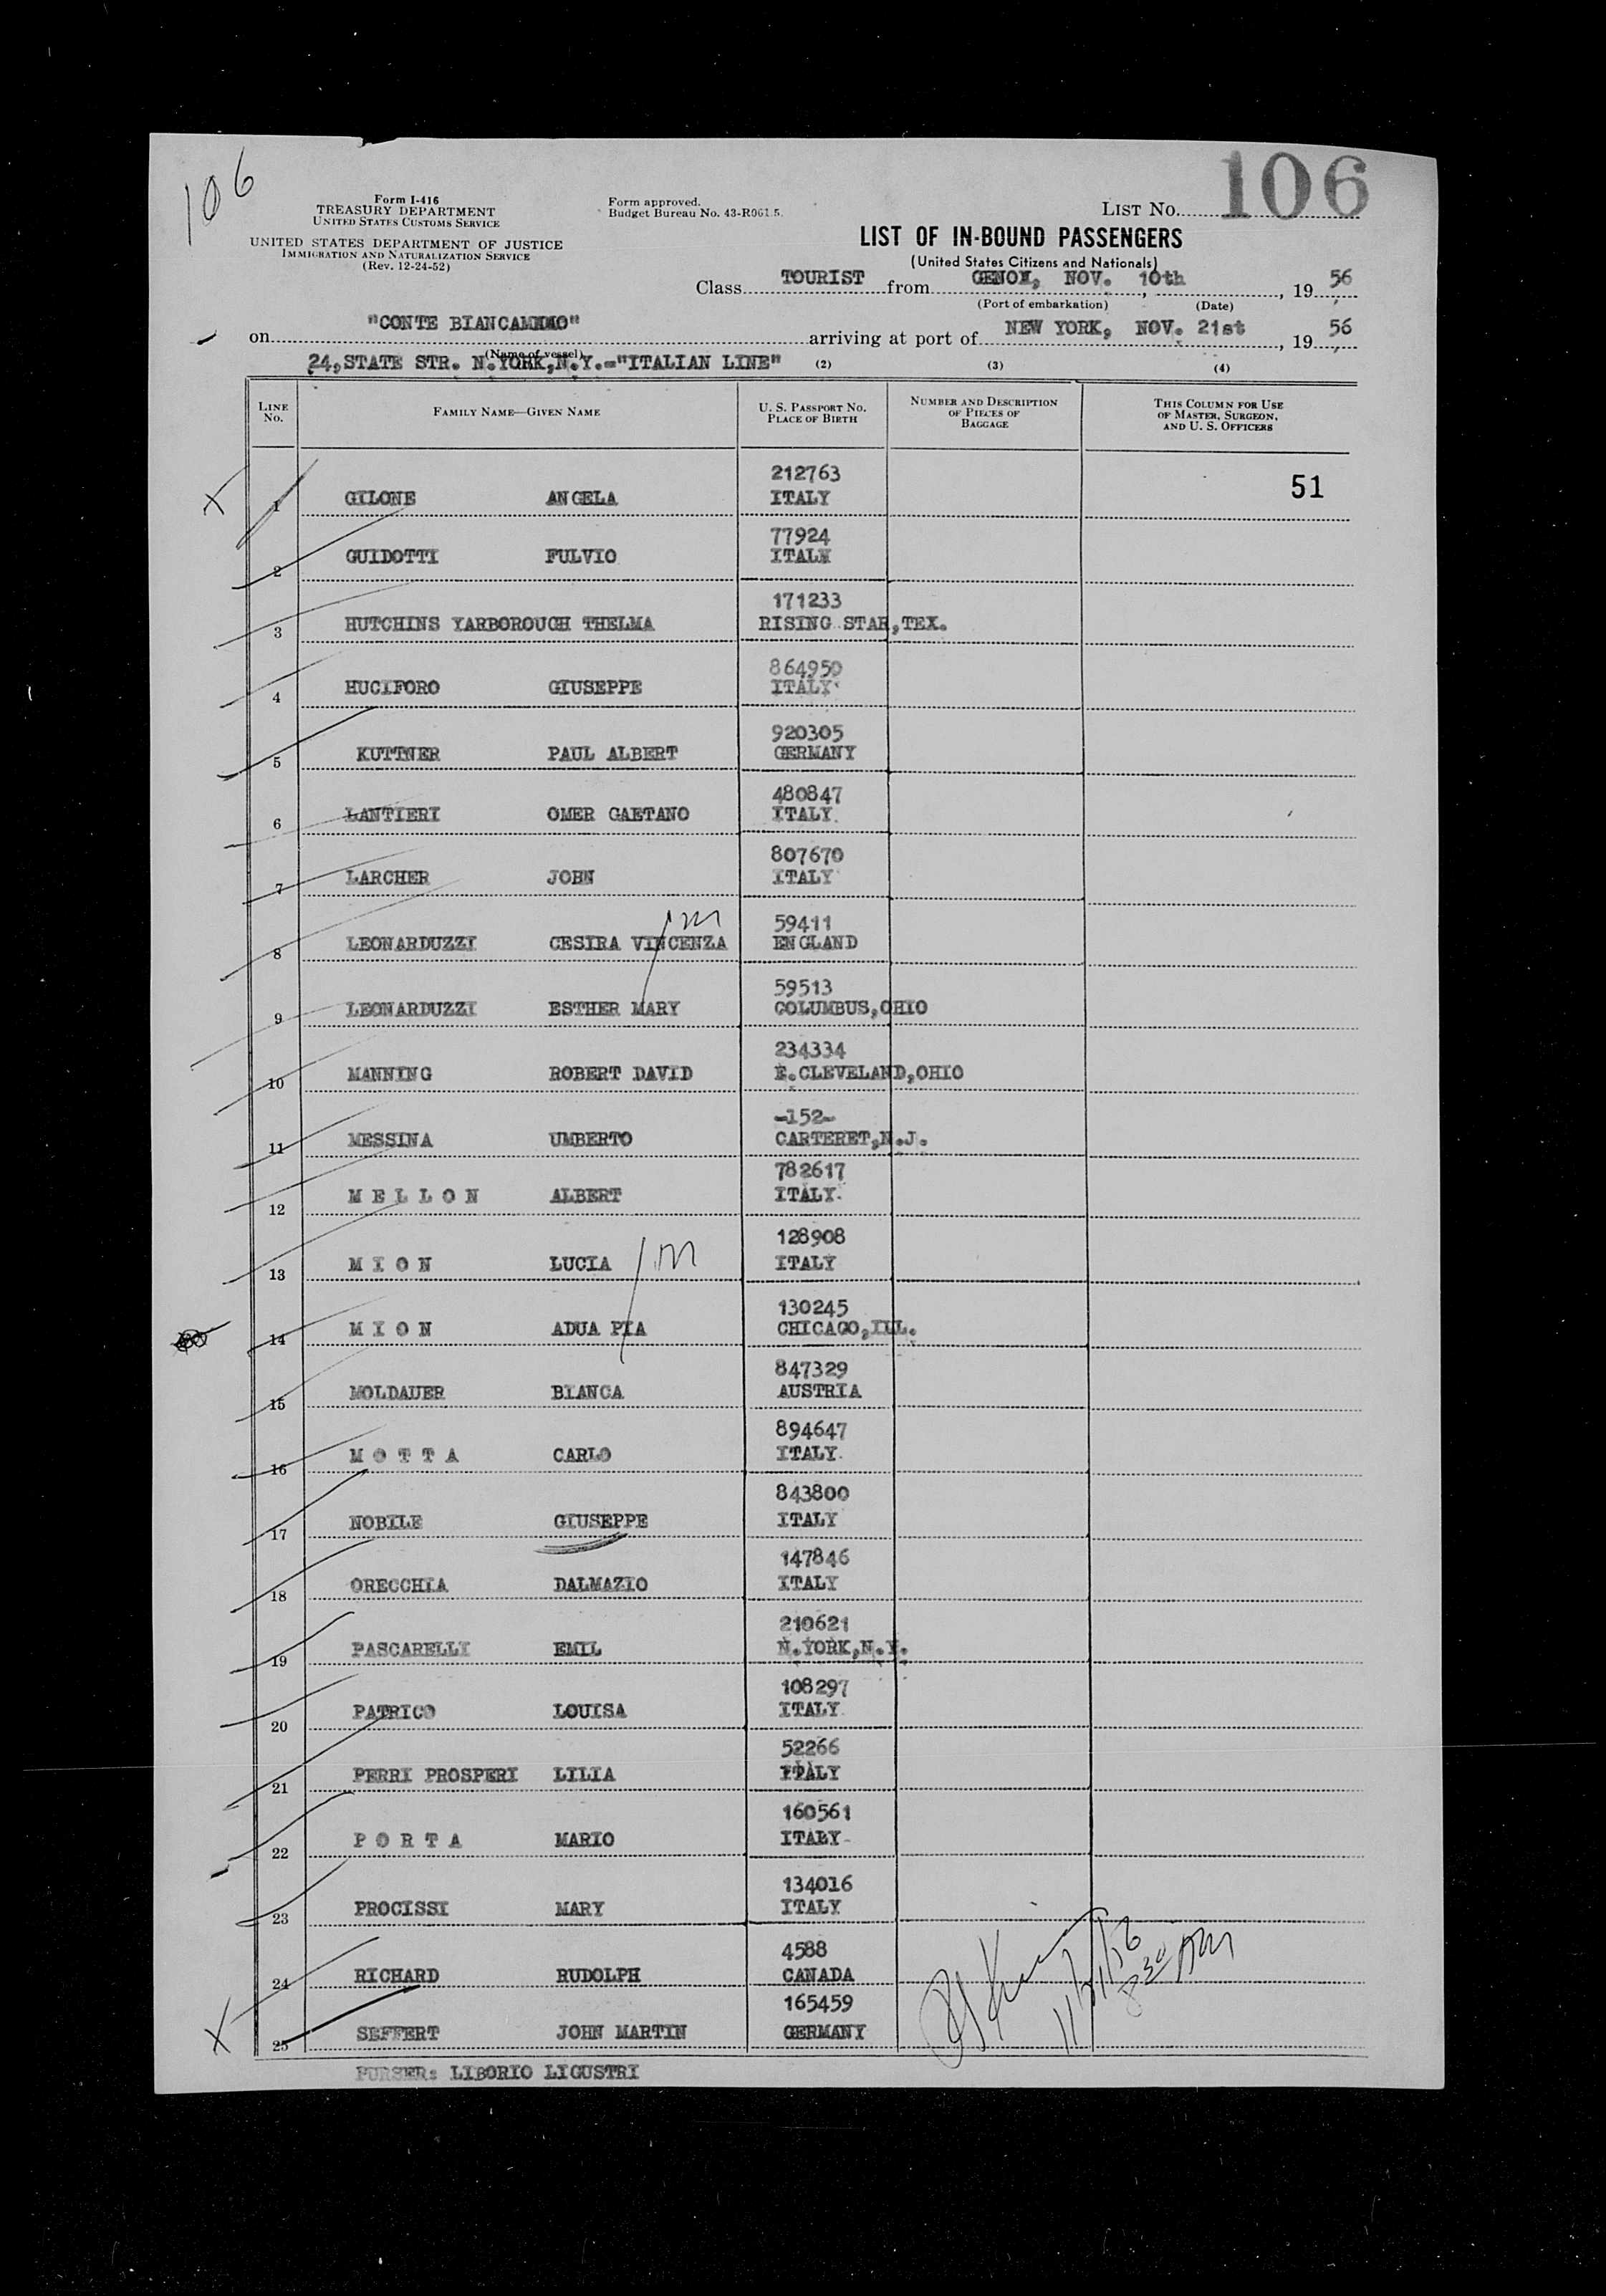 106
106
Form I-416
TREASURY DEPARTMENT
UNITED STATES CUSTOMS SERVICE
UNITED STATES DEPARTMENT OF JUSTICE
IMMIGRATION AND NATURALIZATION SERVICE
(Rev. 12-24-52)
Form approved.
Budget Bureau No. 43-R061.5.
LIST NO.
LIST OF IN-BOUND PASSENGERS
(United States Citizens and Nationals)
Class TOURIST from GENOA, NOV. 10th, 1956
(Port of embarkation) (Date)
on "CONTE BIANCAMANO" arriving at port of NEW YORK, NOV. 21st, 1956
(Name of vessel)
24,STATE STR. N.YORK,N.Y.="ITALIAN LINE" (2) (3) (4)
LINE NO. FAMILY NAME—GIVEN NAME U. S. PASSPORT NO. PLACE OF BIRTH NUMBER AND DESCRIPTION OF PIECES OF BAGGAGE THIS COLUMN FOR USE OF MASTER, SURGEON, AND U. S. OFFICERS
212763 51
1 GILONE ANGELA ITALY
77924
2 GUIDOTTI FULVIO ITALY
171233
3 HUTCHINS YARBOROUGH THELMA RISING STAR,TEX.
864950
4 HUCIFORO GIUSEPPE ITALY
920305
5 KUTTNER PAUL ALBERT GERMANY
480847
6 LANTIERI OMER GAETANO ITALY
807670
7 LARCHER JOHN ITALY
59411
8 LEONARDUZZI CESIRA VINCENZA ENGLAND
m
59513
9 LEONARDUZZI ESTHER MARY COLUMBUS,OHIO
234334
10 MANNING ROBERT DAVID E.CLEVELAND,OHIO
-152-
11 MESSINA UMBERTO CARTERET,N.J.
782617
12 M E L L O N ALBERT ITALY
128908
13 M I O N LUCIA ITALY
m
130245
14 M I O N ADUA PIA CHICAGO,ILL.
847329
15 MOLDAUER BIANCA AUSTRIA
894647
16 M O T T A CARLO ITALY
843800
17 NOBILE GIUSEPPE ITALY
147846
18 ORECCHIA DALMAZIO ITALY
210621
19 PASCARELLI EMIL N.YORK,N.Y.
108297
20 PATRICO LOUISA ITALY
52266
21 PERRI PROSPERI LILIA ITALY
160561
22 P O R T A MARIO ITALY
134016
23 PROCISSI MARY ITALY
4588
24 RICHARD RUDOLPH CANADA
165459
25 SEFFERT JOHN MARTIN GERMANY
11/21/56
830 AM
PURSER: LIBORIO LIGUSTRI